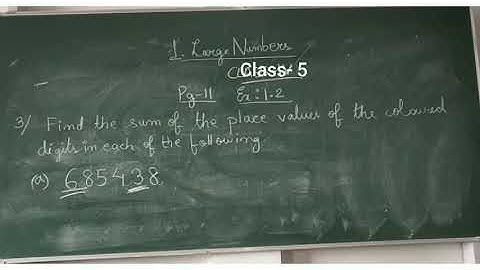 1. Large Numbers
Class- 5
Pg-11 Ex: 1.2
3) Find the sum of the place values of the coloured
digits in each of the following.
(a) 685438